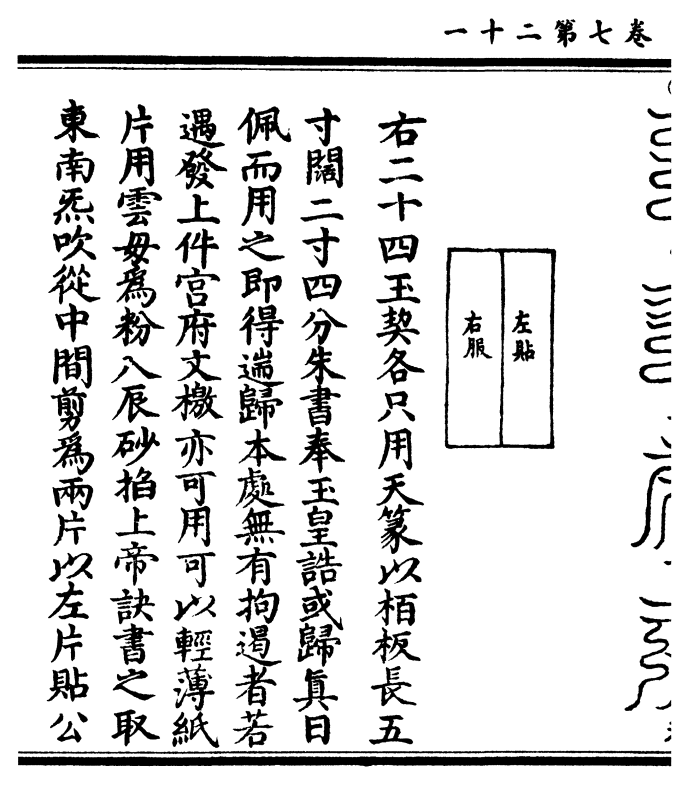 卷七第二十一
左貼
右服
右二十四玉契各只用天篆以栢板長五
寸闊二寸四分朱書奉玉皇誥或歸眞日
佩而用之即得遄歸本處無有拘遏者若
遇發上件宫府文檄亦可用可以輕薄紙
片用雲母爲粉入辰砂掐上帝訣書之取
東南炁吹從中間剪爲兩片以左片貼公